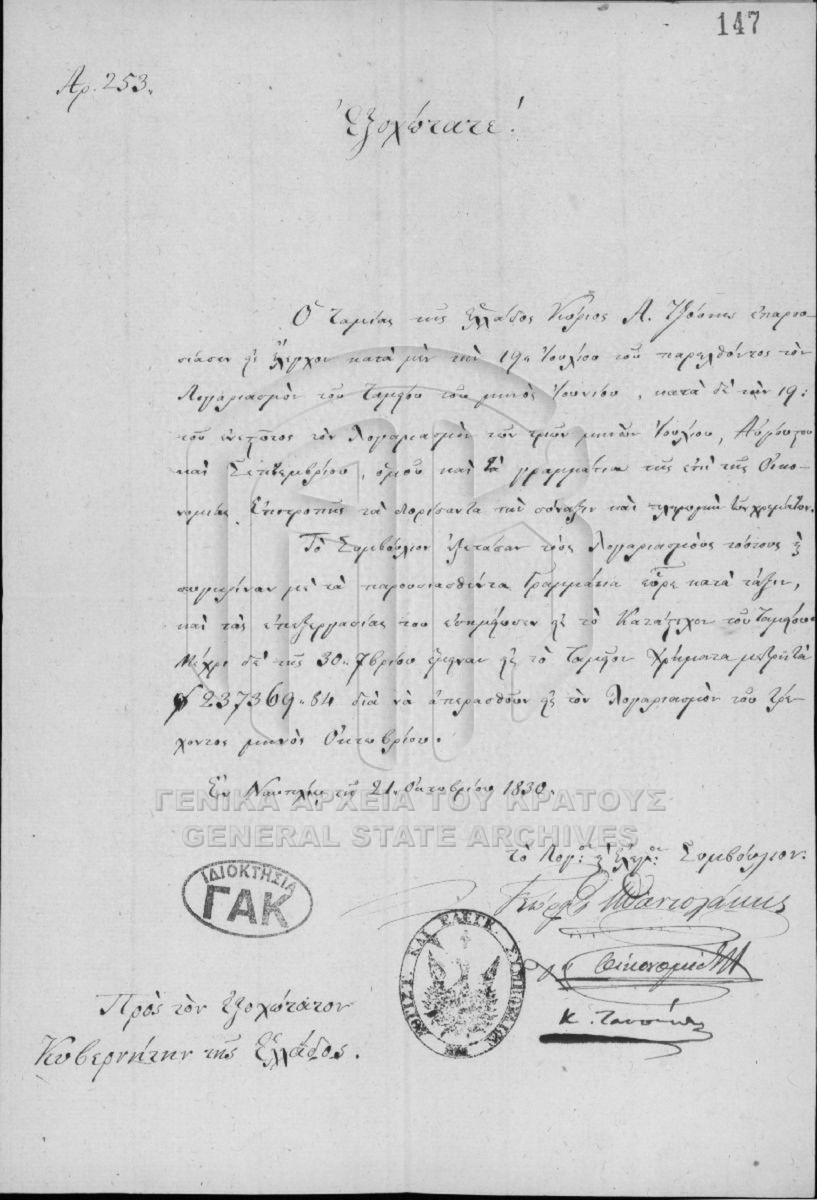 147
Αρ. 253.
Ἐξοχώτατε!
Ὁ Ταμίας τῆς Ἑλλάδος Κύριος Α. παρου-
σίασεν εἰς ἔλεγχον κατὰ μὲν τὴν 19 Ἰουλίου τοῦ παρελθόντος τὸν
Λογαριασμὸν τοῦ Ταμείου τοῦ μηνὸς Ἰουνίου, κατὰ δὲ τὴν 19:
τοῦ ἐνεστῶτος τὸν Λογαριασμὸν τῶν τριῶν μηνῶν Ἰουλίου, Αὐγούστου
καὶ Σεπτεμβρίου, ὁμοῦ καὶ τὰ γραμμάτια τῆς ἐπὶ τῆς Οἰκο-
νομίας Ἐπιτροπῆς τὰ διορίσαντα τὴν σύναξιν καὶ πληρωμὴν τῶν χρημάτων.
Τὸ Συμβούλιον ἐξετάσαν τοὺς Λογαριασμοὺς τούτους καὶ
συγκρίναν μὲ τὰ παρουσιασθέντα Γραμμάτια εὗρε κατὰ τάξιν,
καὶ τὰς ἐπεξεργασίας του ἐσημείωσεν εἰς τὸ Κατάστιχον τοῦ Ταμείου
Μέχρι δὲ τῆς 30 7βρίου ἔμειναν εἰς τὸ Ταμεῖον Χρήματα μετρητὰ
237369.84 διὰ νὰ ἀπερασθοῦν εἰς τὸν Λογαριασμὸν τοῦ τρέ-
χοντος μηνὸς Ὀκτωβρίου.
Ἐν Ναυπλίῳ τῇ 21 Ὀκτωβρίου 1830.
ΓΕΝΙΚΑ ΑΡΧΕΙΑ ΤΟΥ ΚΡΑΤΟΥΣ
GENERAL STATE ARCHIVES
τὸ Λογ: καὶ Ἐλεγ: Συμβούλιον.
ΙΔΙΟΚΤΗΣΙΑ
ΓΑΚ
ΛΟΓΙΣΤ. ΚΑΙ ΕΛΕΓΚ. ΣΥΜΒΟΥΛΙΟΝ
Πρὸς τὸν Ἐξοχώτατον
Κυβερνήτην τῆς Ἑλλάδος.